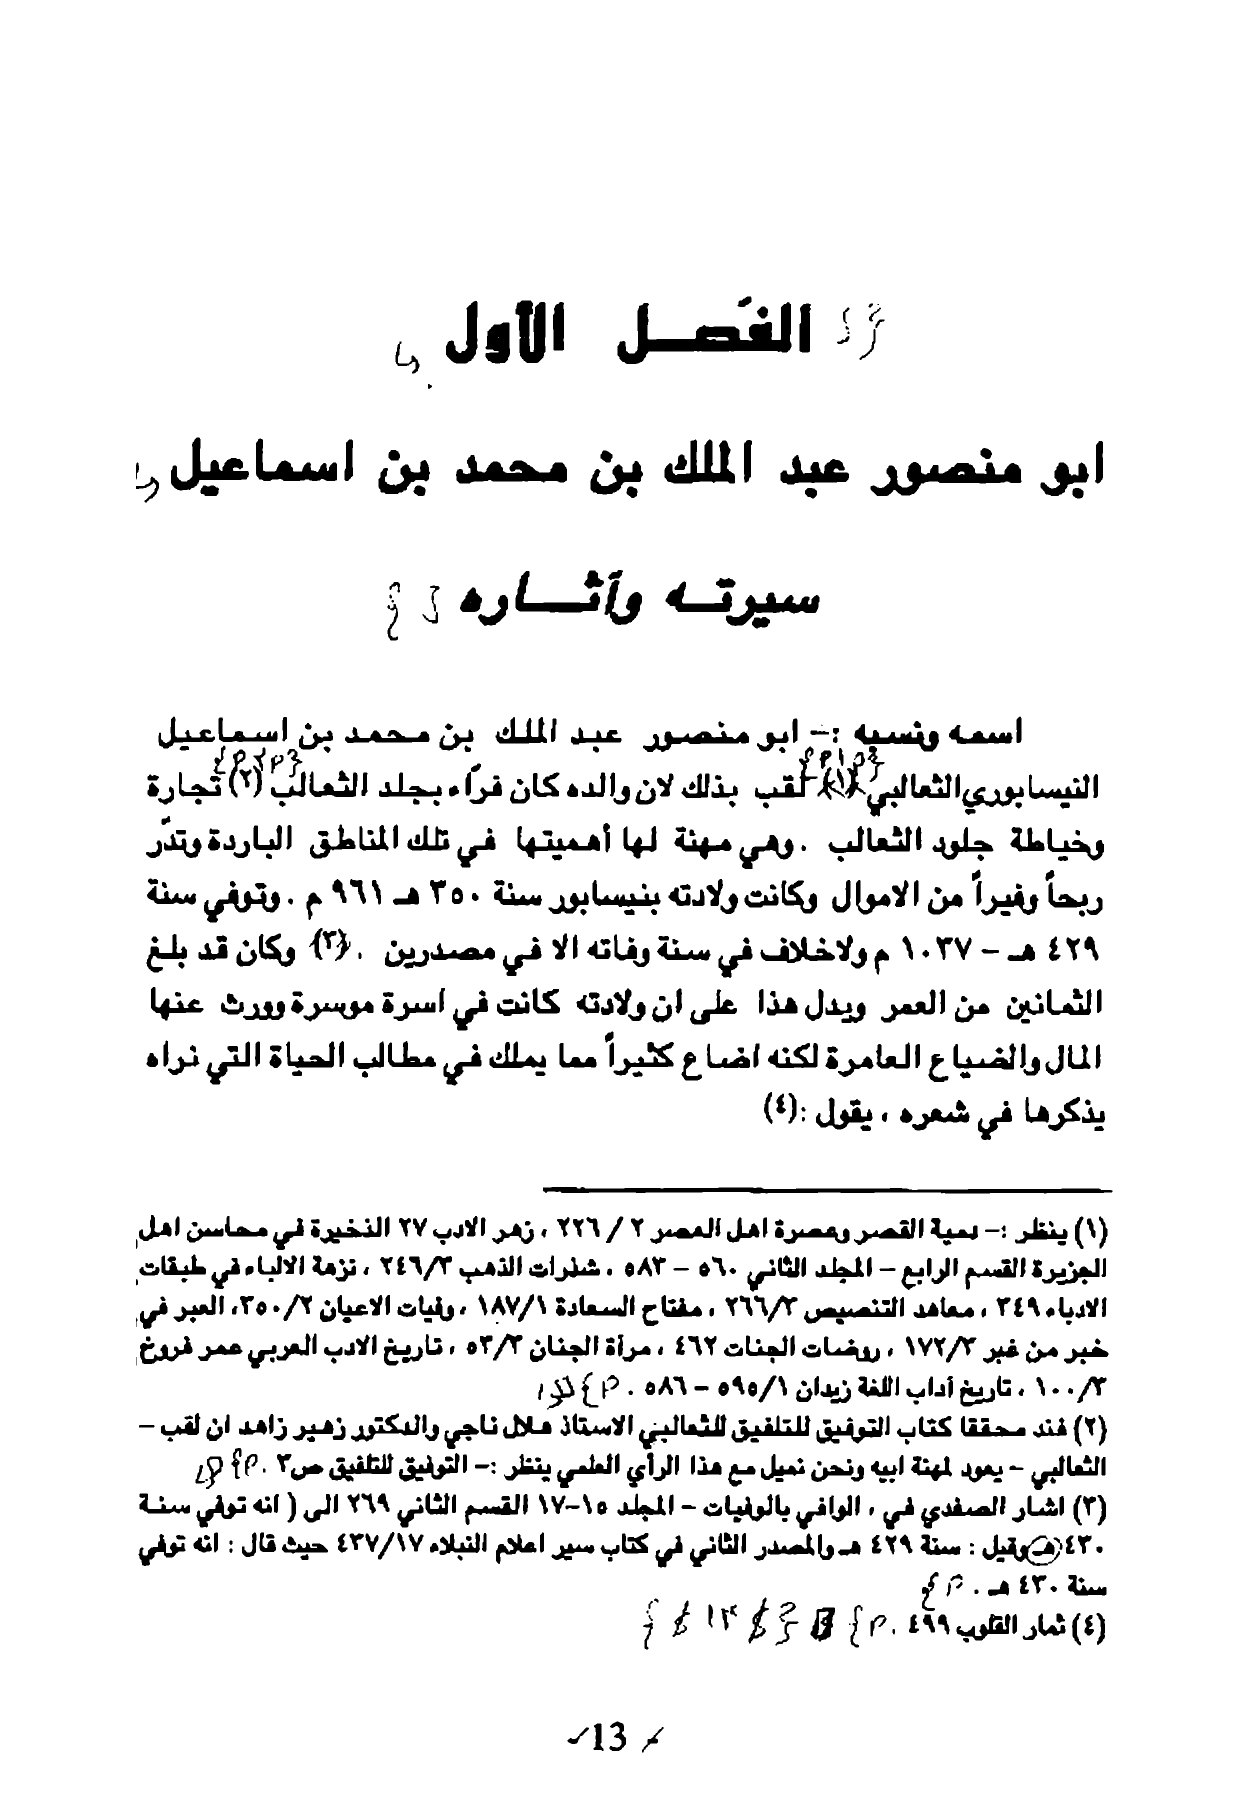 الفصل الأول
ابو منصور عبد الملك بن محمد بن اسماعيل
سيرته وآثاره
اسمه ونسبه :– ابو منصور عبد الملك بن محمد بن اسماعيل
النيسابوري الثعالبي (١) لقب بذلك لان والده كان فرّاء بجلد الثعالب (٢) تجارة
وخياطة جلود الثعالب . وهي مهنة لها أهميتها في تلك المناطق الباردة وتدّر
ربحاً وفيراً من الاموال وكانت ولادته بنيسابور سنة ٣٥٠ هـ ٩٦١ م . وتوفي سنة
٤٢٩ هـ – ١٠٣٧ م ولاخلاف في سنة وفاته الا في مصدرين . (٣) وكان قد بلغ
الثمانين من العمر ويدل هذا على ان ولادته كانت في اسرة موسرة وورث عنها
المال والضياع العامرة لكنه اضاع كثيراً مما يملك في مطالب الحياة التي نراه
يذكرها في شعره ، يقول : (٤)
(١) ينظر :– دمية القصر وعصرة اهل العصر ٢ / ٢٢٦ ، زهر الادب ٢٧ الذخيرة في محاسن اهل
الجزيرة القسم الرابع – المجلد الثاني ٥٦٠ – ٥٨٣ ، شذرات الذهب ٢٤٦/٣ ، نزهة الالباء في طبقات
الادباء ٣٤٩ ، معاهد التنصيص ٢٦٦/٣ ، مفتاح السعادة ١٨٧/١ ، وفيات الاعيان ٣٥٠/٢، العبر في
خبر من غبر ١٧٢/٣ ، روضات الجنات ٤٦٢ ، مرآة الجنان ٥٣/٣ ، تاريخ الادب العربي عمر فروخ
١٠٠/٣ ، تاريخ آداب اللغة زيدان ٥٩٥/١ – ٥٨٦ .
(٢) فند محققا كتاب التوفيق للتلفيق للثعالبي الاستاذ هلال ناجي والدكتور زهير زاهد ان لقب –
الثعالبي – يعود لمهنة ابيه ونحن نميل مع هذا الرأي العلمي ينظر :– التوفيق للتلفيق ص٣ .
(٣) اشار الصفدي في ، الوافي بالوفيات – المجلد ١٥–١٧ القسم الثاني ٢٦٩ الى ( انه توفي سنة
٤٣٠ هـ وقيل : سنة ٤٢٩ هـ والمصدر الثاني في كتاب سير اعلام النبلاء ٤٣٧/١٧ حيث قال : انه توفي
سنة ٤٣٠ هـ .
(٤) ثمار القلوب ٤٩٩ .
13